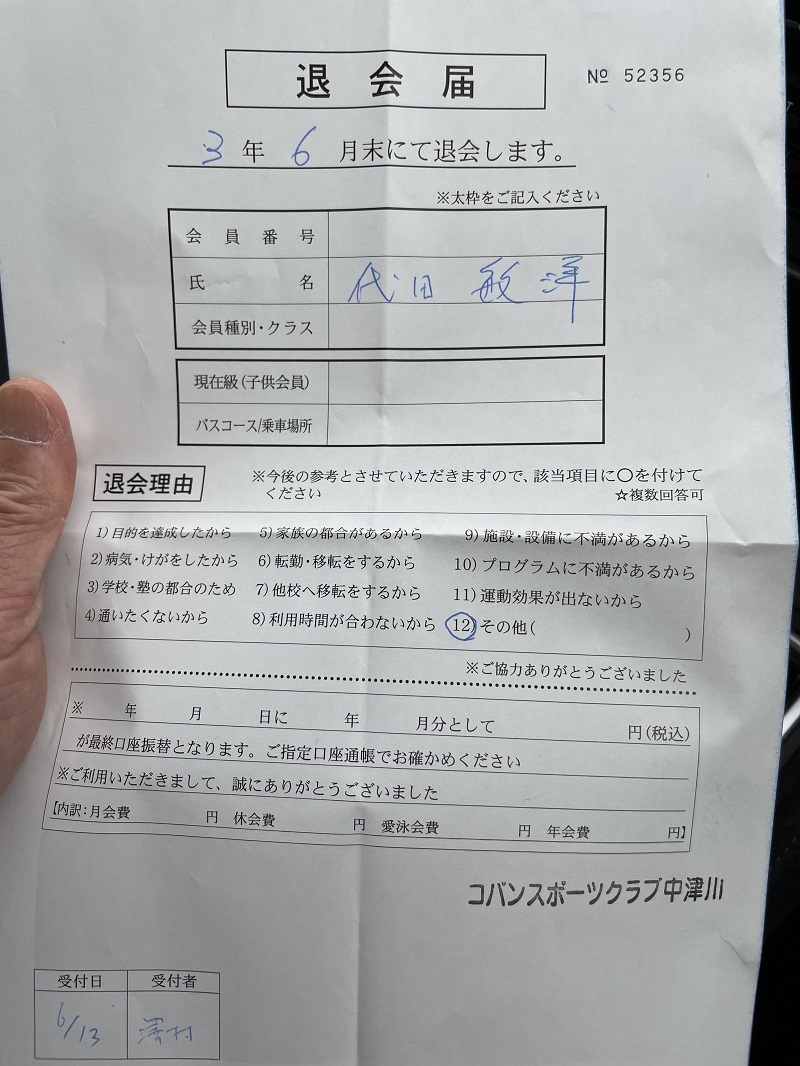 退会届
№ 52356
3年6月末にて退会します。
※太枠をご記入ください
会員番号
氏名 代田 敏洋
会員種別・クラス
現在級(子供会員)
バスコース/乗車場所
退会理由
※今後の参考とさせていただきますので、該当項目に〇を付けて
ください ☆複数回答可
1)目的を達成したから 5)家族の都合があるから 9)施設・設備に不満があるから
2)病気・けがをしたから 6)転勤・移転をするから 10)プログラムに不満があるから
3)学校・塾の都合のため 7)他校へ移転をするから 11)運動効果が出ないから
4)通いたくないから 8)利用時間が合わないから 12)その他( )
※ご協力ありがとうございました
※ 年 月 日に 年 月分として 円(税込)
が最終口座振替となります。ご指定口座通帳でお確かめください
※ご利用いただきまして、誠にありがとうございました
【内訳:月会費 円 休会費 円 愛泳会費 円 年会費 円】
コパンスポーツクラブ中津川
受付日 受付者
6/13 澤村